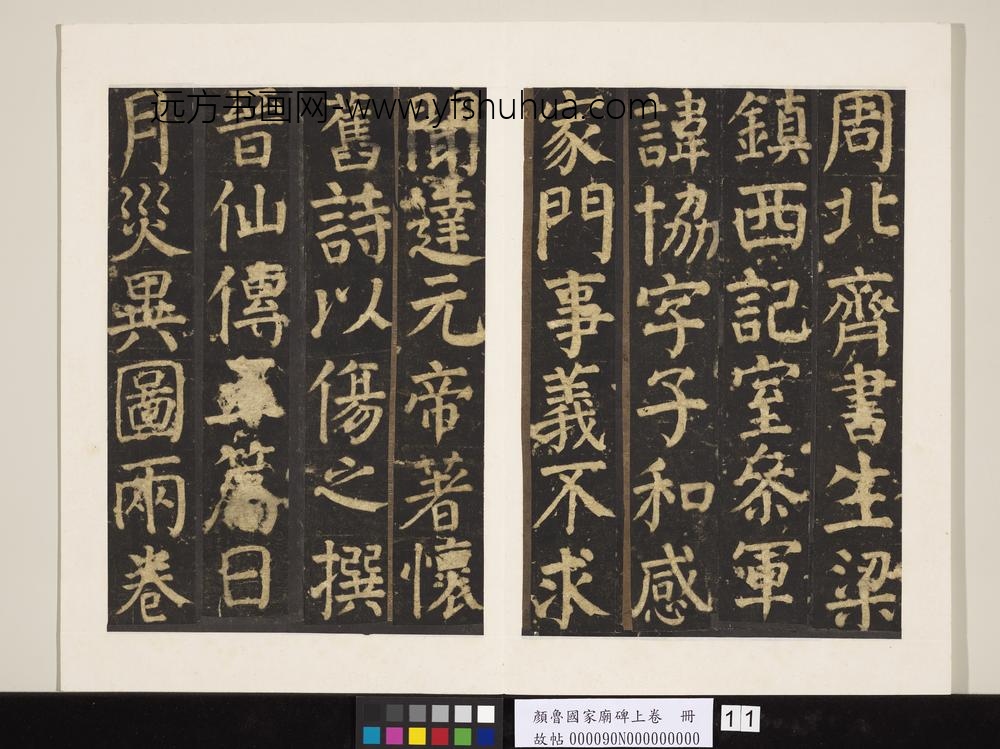 周北齊書生梁
鎮西記室叅軍
諱協字子和感
家門事義不求
聞達元帝著懷
舊詩以傷之撰
晉仙傳五篇日
月災異圖兩卷
远方书画网-www.yfshuhua.com
顏魯國家廟碑上卷 冊
故帖 000090N000000000
11